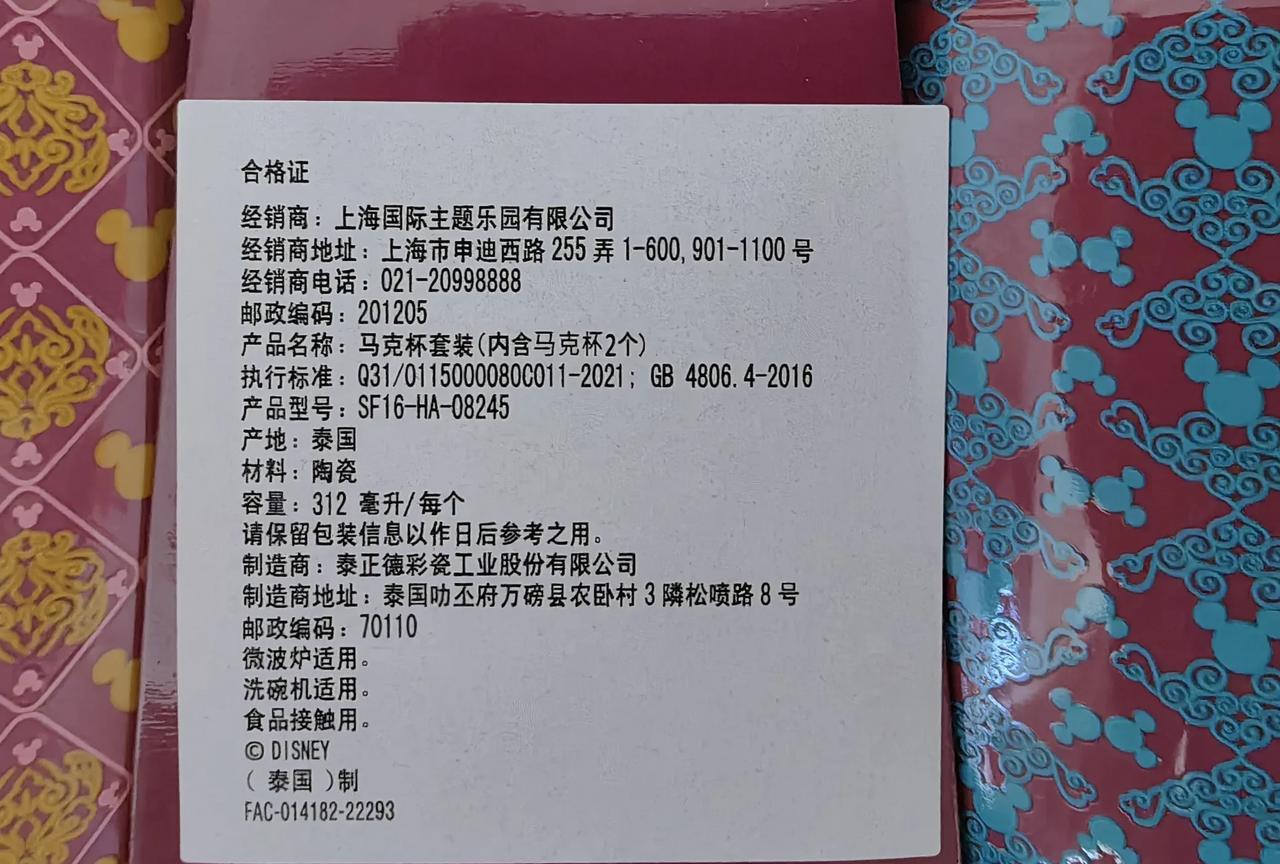 合格证
经销商：上海国际主题乐园有限公司
经销商地址：上海市申迪西路 255 弄 1-600, 901-1100 号
经销商电话：021-20998888
邮政编码：201205
产品名称：马克杯套装(内含马克杯2个)
执行标准：Q31/0115000080C011-2021; GB 4806.4-2016
产品型号：SF16-HA-08245
产地：泰国
材料：陶瓷
容量：312 毫升/每个
请保留包装信息以作日后参考之用。
制造商：泰正德彩瓷工业股份有限公司
制造商地址：泰国叻丕府万磅县农卧村 3 隣松喷路 8 号
邮政编码：70110
微波炉适用。
洗碗机适用。
食品接触用。
© DISNEY
( 泰国 )制
FAC-014182-22293